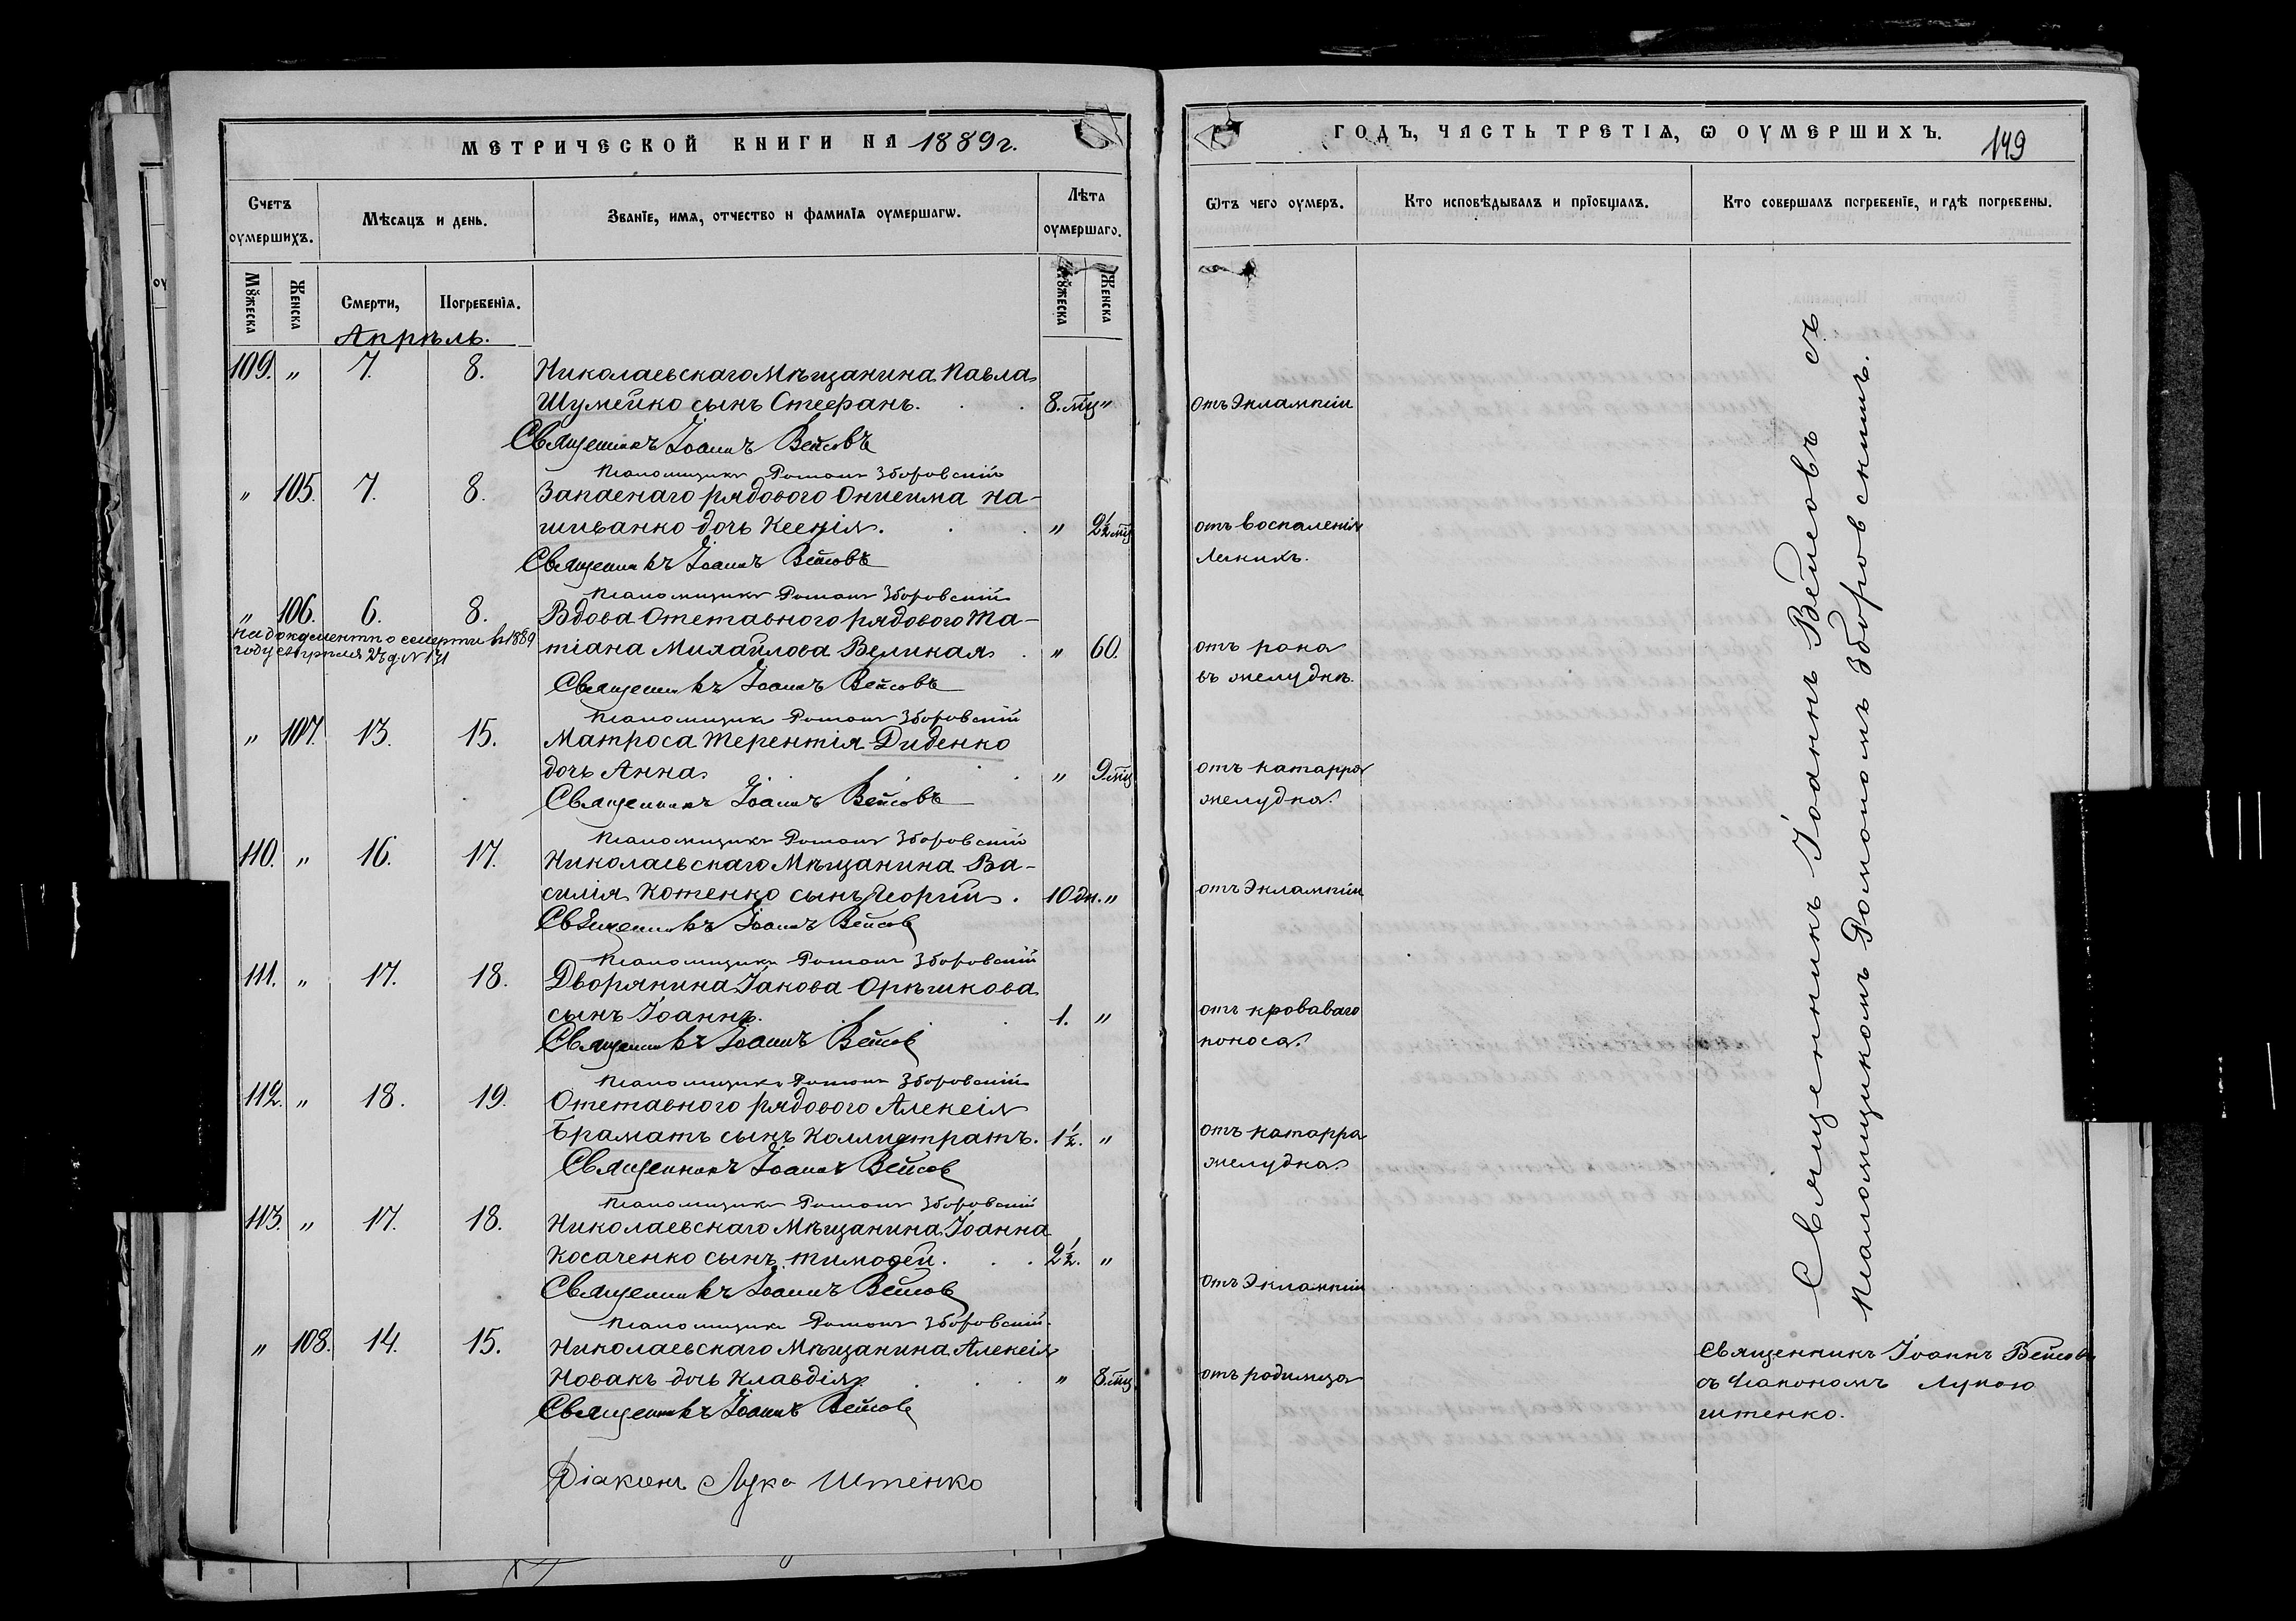 МЕТРИЧЕСКОЙ КНИГИ НА 1889 г.
Счетъ оумершихъ.
Мѣсяцъ и день.
Званіе, имя, отчество и фамилія оумершагѡ.
Лѣта оумершаго.
Мꙋжеска
Женска
Смерти,
Погребенія.
Мꙋжеска
Женска
Апрѣль.
109. " 7. 8. Николаевскаго Мѣщанина Павла
Шумейко сынъ Стефанъ. 8. мц "
Священникъ Іоаннъ Вейсовъ
Псаломщикъ Романъ Зборовскій
" 105. 7. 8. Запаснаго рядового Онисима На-
шиванко дочь Ксенія. " 2½ мц
Священникъ Іоаннъ Вейсовъ
Псаломщикъ Романъ Зборовскій
" 106. 6. 8. Вдова Отставного рядового Та-
тіана Михайлова Великая. " 60.
на документъ о смерти въ 1889
году
Священникъ Іоаннъ Вейсовъ
Псаломщикъ Романъ Зборовскій
" 107. 13. 15. Матроса Терентія Диденко
дочь Анна. " 9 мц
Священникъ Іоаннъ Вейсовъ
Псаломщикъ Романъ Зборовскій
110. " 16. 17. Николаевскаго Мѣщанина Ва-
силія Котенко сынъ Георгій. 10 дн. "
Священникъ Іоаннъ Вейсовъ
Псаломщикъ Романъ Зборовскій
111. " 17. 18. Дворянина Іакова Орѣшкова
сынъ Іоаннъ. 1. "
Священникъ Іоаннъ Вейсовъ
Псаломщикъ Романъ Зборовскій
112. " 18. 19. Отставного рядового Алексія
Браматъ сынъ Каллистратъ. 1½. "
Священникъ Іоаннъ Вейсовъ
Псаломщикъ Романъ Зборовскій
113. " 17. 18. Николаевскаго Мѣщанина Іоанна
Косаченко сынъ Тимофей. 2½. "
Священникъ Іоаннъ Вейсовъ
Псаломщикъ Романъ Зборовскій
" 108. 14. 15. Николаевскаго Мѣщанина Алексія
Новакъ дочь Клавдія. " 8. мц
Священникъ Іоаннъ Вейсовъ
Діаконъ Лука Штенко
ГОДЪ, ЧАСТЬ ТРЕТІЯ, Ѡ ОУМЕРШИХЪ.
149
Ѿтъ чего оумеръ.
Кто исповѣдывалъ и пріобщалъ.
Кто совершалъ погребеніе, и гдѣ погребены.
отъ Эклампсіи
отъ воспаленія
легкихъ.
отъ рака
въ желудкѣ.
отъ катарра
желудка.
отъ Эклампсіи
отъ кроваваго
поноса.
отъ катарра
желудка.
отъ Эклампсіи
отъ родимца
Священникъ Іоаннъ Вейсовъ съ
псаломщикомъ Романомъ Зборовскимъ.
Священникъ Іоаннъ Вейсовъ
съ Діакономъ Лукою
Штенко.